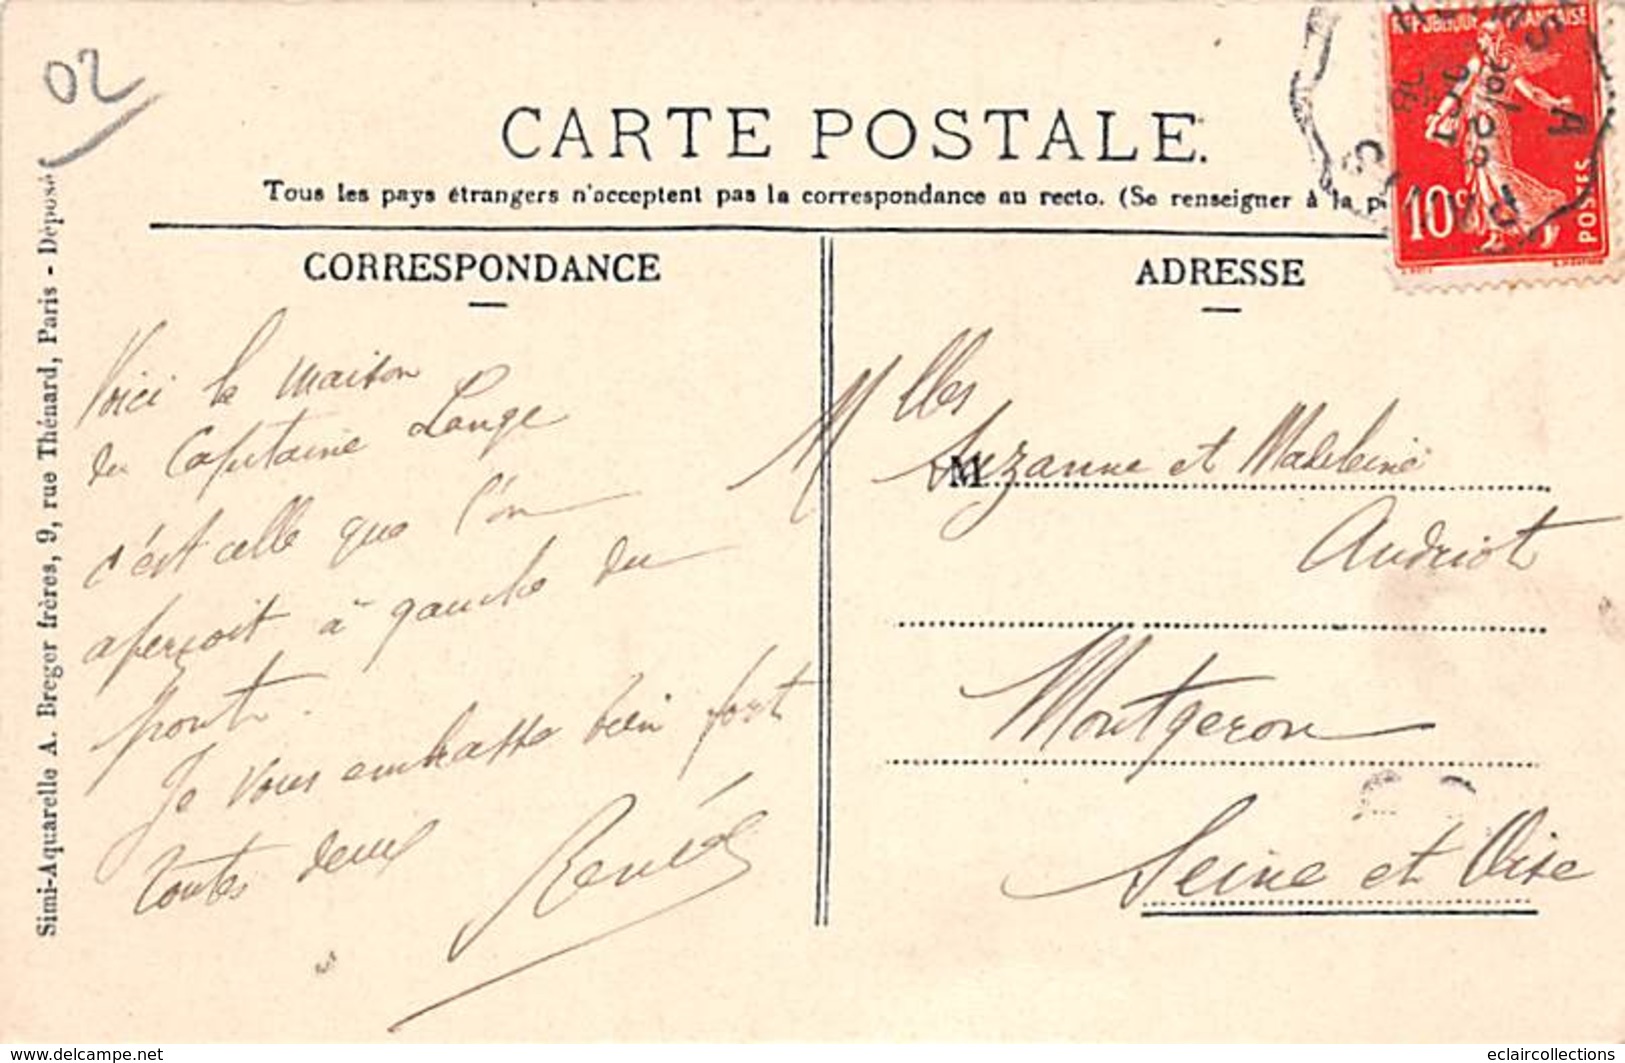 02
CARTE POSTALE.
Tous les pays étrangers n'acceptent pas la correspondance au recto. (Se renseigner à la p
CORRESPONDANCE
ADRESSE
REPUBLIQUE FRANÇAISE
10c
POSTES
Simi-Aquarelle A. Breger frères, 9, rue Thénard, Paris - Déposé
Voici la maison
du Capitaine Lange
c'est celle que l'on
aperçoit à gauche du
pont.
Je vous embrasse bien fort
toutes deux
Renée
Mlles
M Suzanne et Madeleine
Andriot
Montgeron
Seine et Oise
www.delcampe.net
eclaircollections